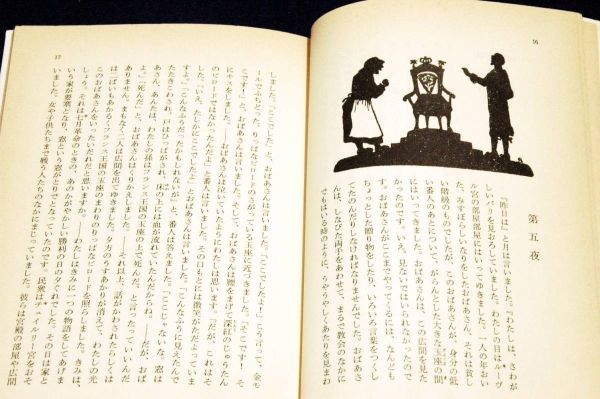 16
第五夜
「『昨日は』と月は言いました。『わたしは、さわが
しいパリを見おろしていました。わたしの目はルーヴ
ル宮の部屋部屋にはいってゆきました。一人の年おい
た、みすぼらしいなりをしたおばあさん、それは貧し
い階級のものでしたが、このおばあさんが、身分の低
い番人のあとについて、がらんとした大きな玉座の間
にはいって来ました。おばあさんは、この広間を見た
かったのです。いえ、見ないではいられなかったので
す。おばあさんがここまでやってくるには、なんども
ちょっとした贈り物をしたり、いろいろ言葉をつくし
てたのんだりしなければなりませんでした。おばあさ
んは、しなびた両手をあわせて、まるで教会のなかに
でもはいる時のように、うやうやしくあたりを見まわ
17
しました。「ここでしたよ！」と、おばあさんは言いました。「ここでしたよ！」こう言って、金モ
ールでふちどった、りっぱなビロードのさがっている玉座に近づきました。「そこです！　そ
こですよ！」と、おばあさんは言いました。そして、おばあさんは腰をまげて深紅のじゅうたん
にキスをしました。――おばあさんは泣いていたようにわたしには思います。「だが、これはそ
のビロードではなかったんだよ」と番人は言いました。その口もとには微笑がただよっていま
した。「いえ、たしかにここでした」とおばあさんは言いました。「こんなふうに見えたんで
すよ」「こんなふうだったかもしれないが」と、番人は答えました。「ここじゃないな。窓は
たたきこわされ、戸はひっぱがされ、床の上には血が流れていたんだからね。――だが、おば
あさん、あんたは、わたしの孫はフランス王国の玉座の上で死んだ、と言ったっていいんだ
よ」「死んだ！」と、おばあさんはくりかえしました。――それ以上、話がかわされたらしくは
ありません。まもなく二人は広間を出てゆきました。夕方のうすあかりが消えて、わたしの光
は二ばいもあかるくフランス王国の玉座のまわりのりっぱなビロードを照らしました。きみは、
このおばあさんをいったいだれだと思いますか。――わたしはきみに一つの物語をしてあげま
しょう。それは七月革命のときの、あのかがやかしい勝利の日の夕ぐれでした。その日は家と
いう家が要塞となり、窓という窓がとりでとなっていたのです。民衆はチュイルリー宮をおそ
いました。女や子供たちまで戦う人たちのなかにまじっていました。彼らは宮殿の部屋や広間